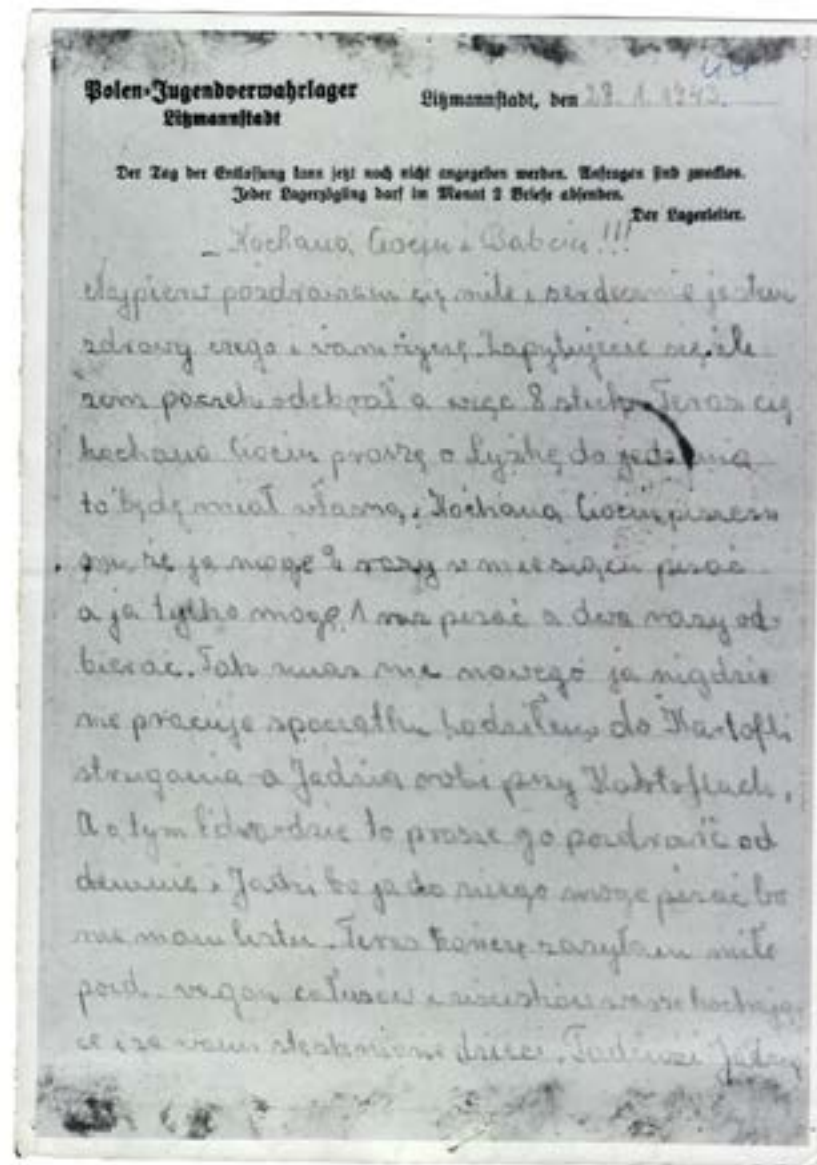 Polen-Jugendverwahrlager
Litzmannstadt
Litzmannstadt, den 28. 1. 1943.
Der Tag der Entlassung kann jetzt noch nicht angegeben werden. Anfragen sind zwecklos.
Jeder Lagerzögling darf im Monat 2 Briefe absenden.
Der Lagerleiter.
- Kochana Ciociu i Babciu!!!
Najpierw pozdrawiam cię mile i serdecznie jestem
zdrowy czego i wam życzę. Zapytujecie się ile
zom paczek odebrał a więc 8 stuk. Teraz cię
kochana Ciociu proszę o Łyżkę do jedzenia
to będę miał własną. Kochana Ciociu piszesz
mi że ja mogę 2 razy w miesiącu pisać
a ja tylko mogę 1 raz pisać a dwa razy od-
bierać. Tak nic nowego ja nigdzie
nie pracuje spoczątku hodziłem do Kartofli
strugania a Jadzia robi przy Kartoflach.
A o tym Edwardzie to prosze go pozdrowić od
demnie i Jadzi bo ja do niego moge pisać bo
nie mam listu. Teraz kończę zasyłam miłe
pozd. całusów i uścisków wasze kochają-
ce i za wami stesknione dzieci. Tadeusz i Jadzia